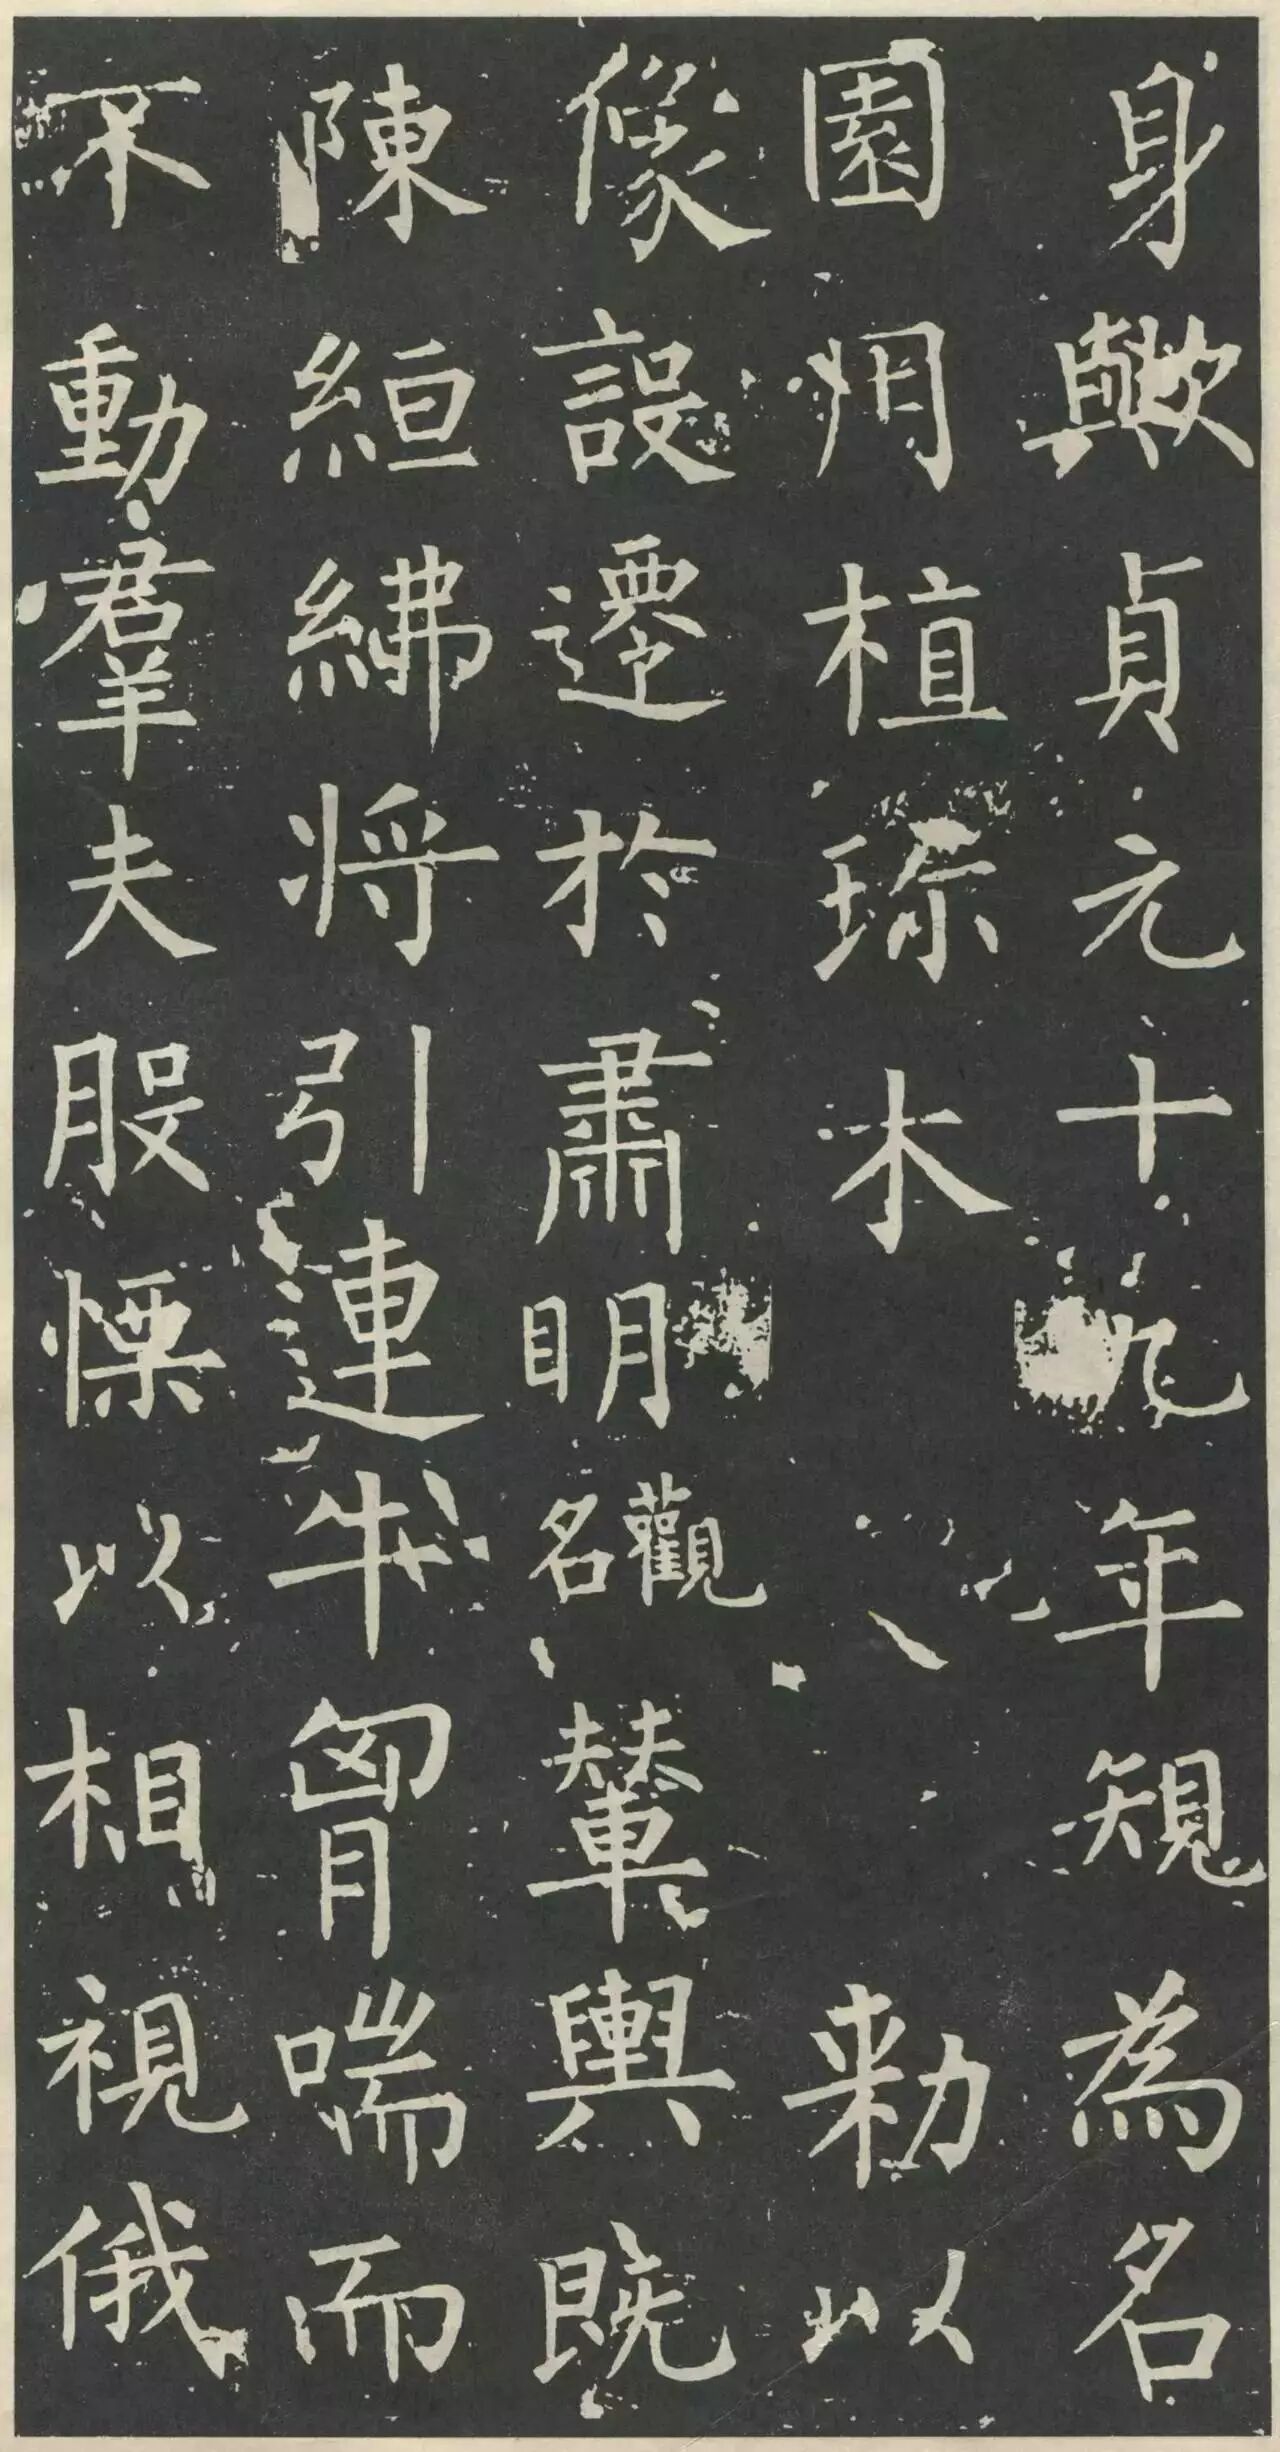 身歟貞元十九年規為名
園用植琼木敕以
像設遷於肅明觀名輦輿既
陳絙紼將引連牛胷喘而
不動羣夫股慄以相視俄